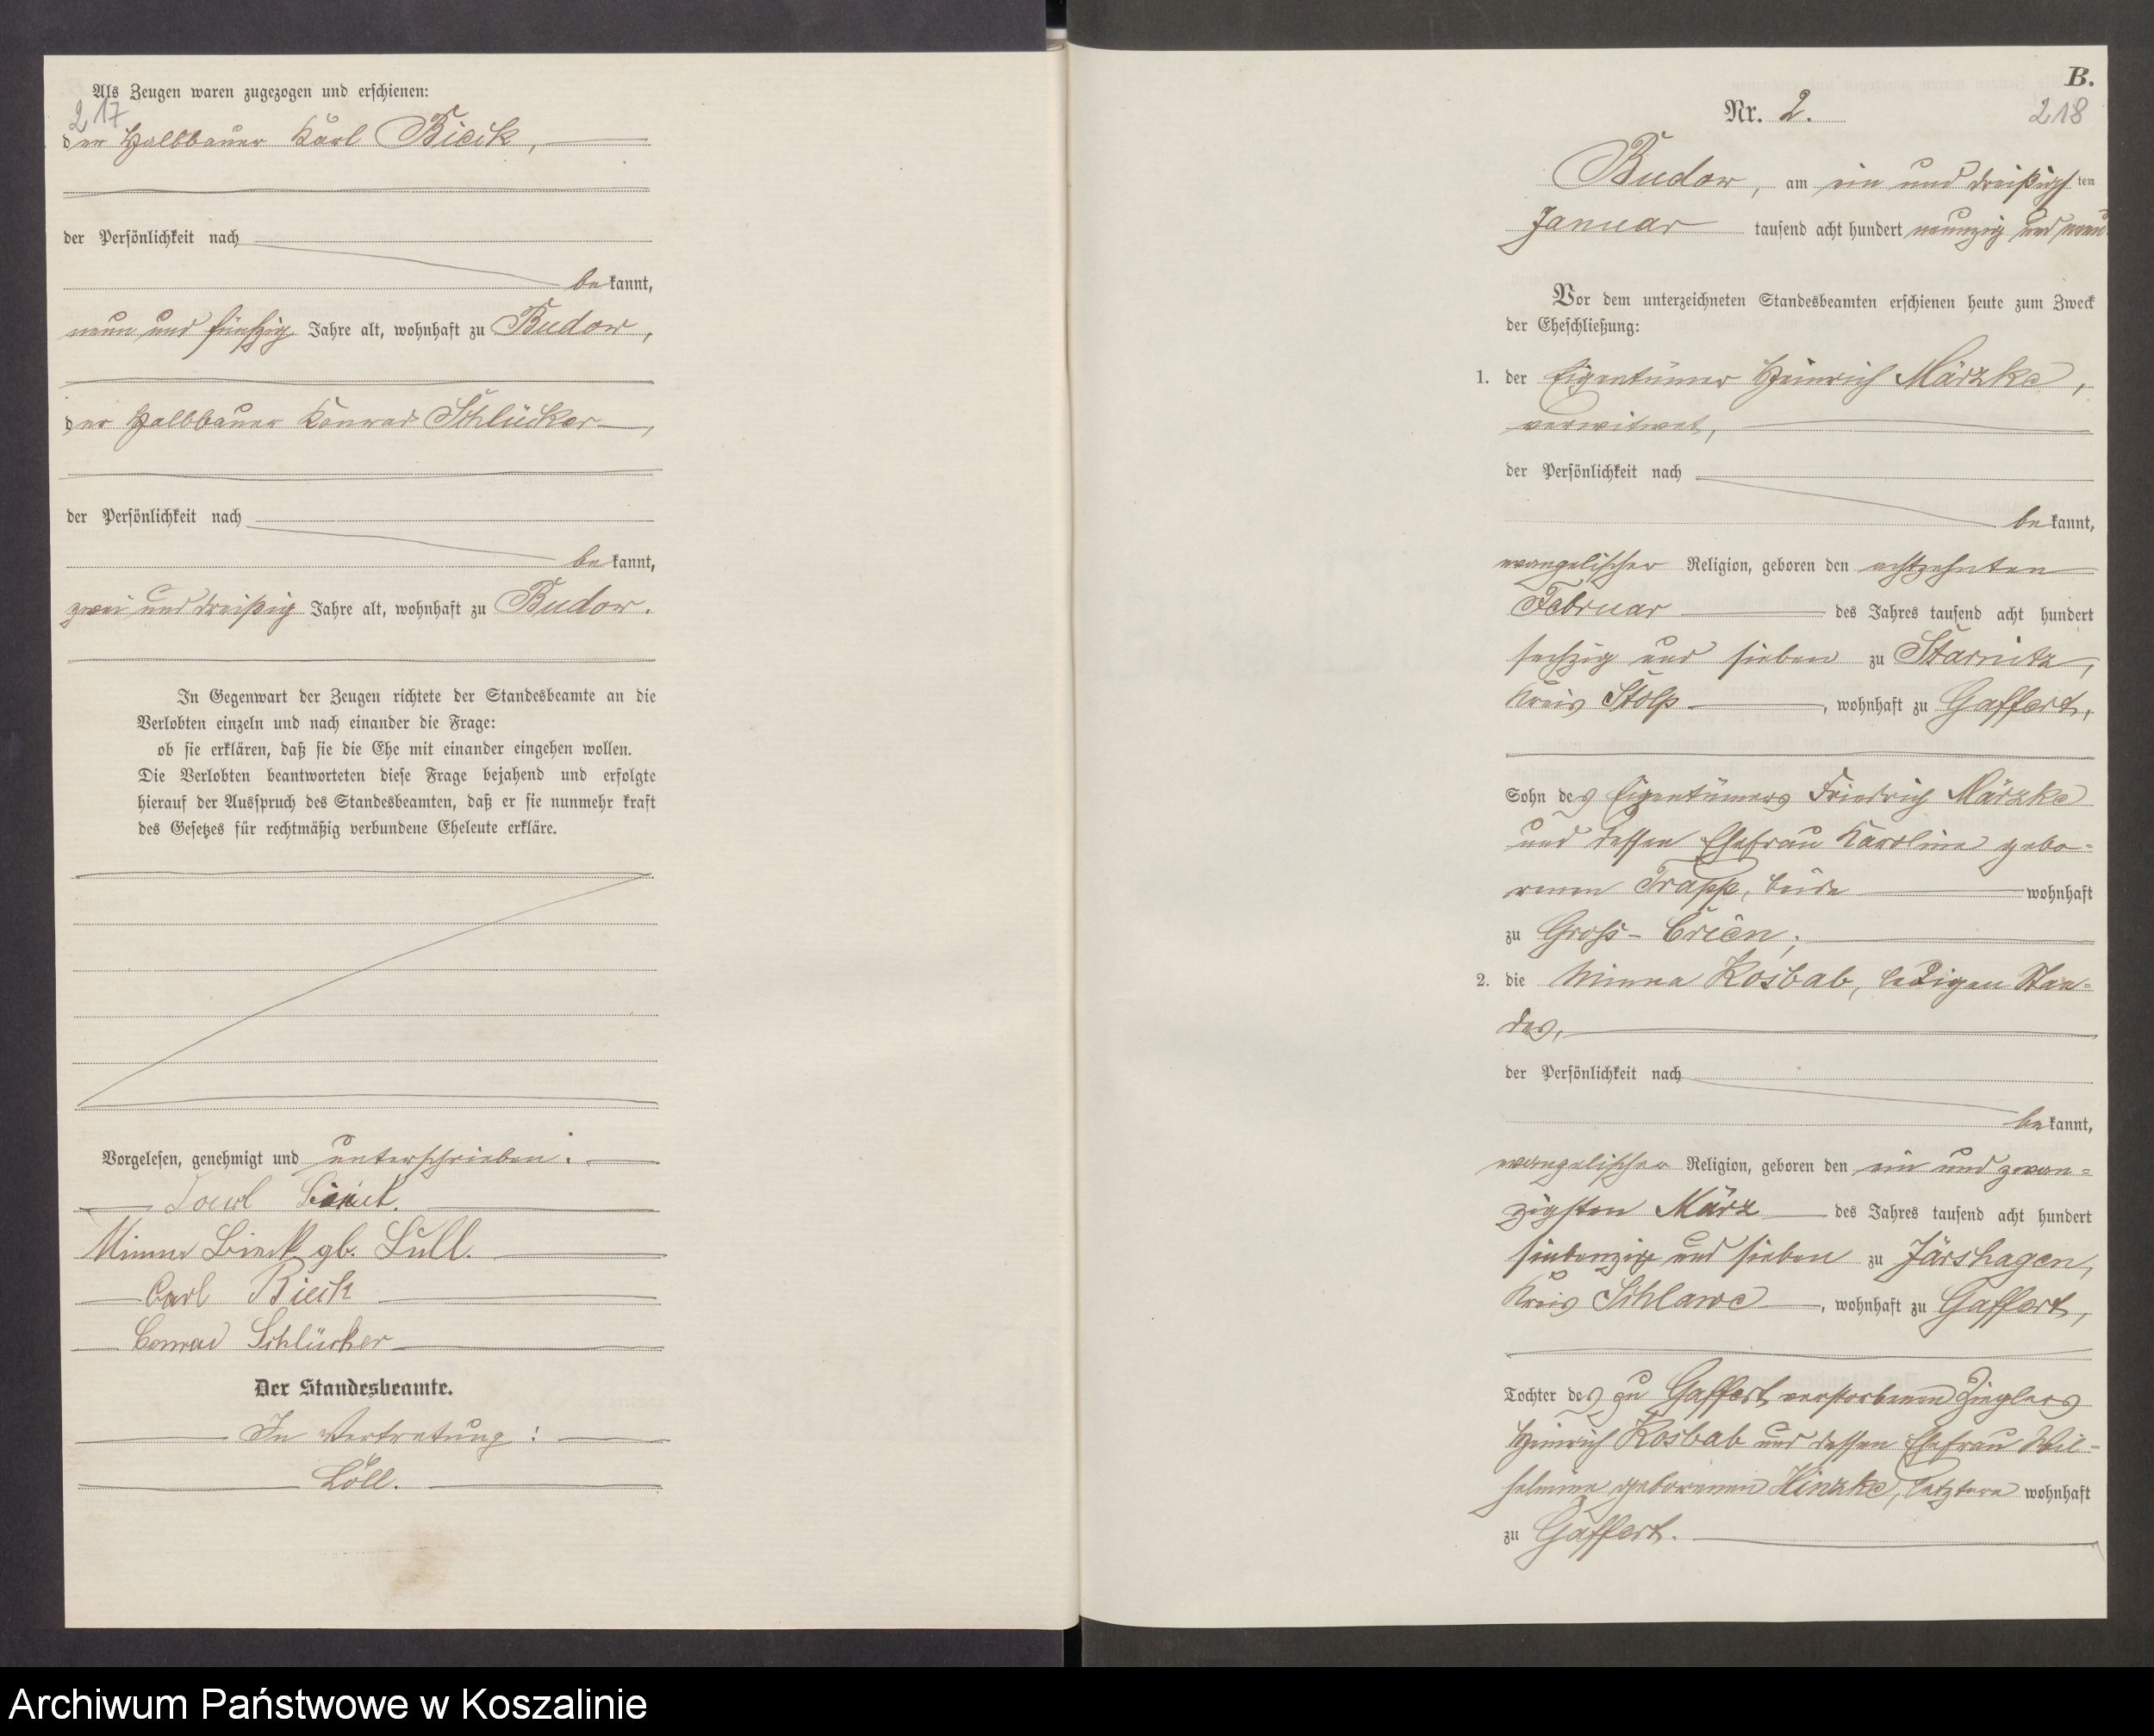 Als Zeugen waren zugezogen und erschienen:
217
der Halbbauer Karl Bieck,
der Persönlichkeit nach
bekannt,
neun und fünfzig Jahre alt, wohnhaft zu Budow,
der Halbbauer Konrad Schlücker,
der Persönlichkeit nach
bekannt,
zwei und dreißig Jahre alt, wohnhaft zu Budow.
In Gegenwart der Zeugen richtete der Standesbeamte an die
Verlobten einzeln und nach einander die Frage:
ob sie erklären, daß sie die Ehe mit einander eingehen wollen.
Die Verlobten beantworteten diese Frage bejahend und erfolgte
hierauf der Ausspruch des Standesbeamten, daß er sie nunmehr kraft
des Gesetzes für rechtmäßig verbundene Eheleute erkläre.
Vorgelesen, genehmigt und unterschrieben.
Minna Bieck gb. Lull.
Carl Bieck
Conrad Schlücker
Der Standesbeamte.
In Vertretung:
Löll.
B.
Nr. 2.
218
Budow, am ein und dreißigsten
Januar tausend acht hundert neunzig und neun
Vor dem unterzeichneten Standesbeamten erschienen heute zum Zweck
der Eheschließung:
1. der Eigentümer Heinrich Märzke,
verwitwet,
der Persönlichkeit nach
bekannt,
evangelischer Religion, geboren den achtzehnten
Februar des Jahres tausend acht hundert
sechzig und sieben zu Starnitz,
Kreis Stolp, wohnhaft zu Gaffert,
Sohn des Eigentümers Friedrich Märzke
und dessen Ehefrau Karoline gebo-
renen Trapp, beide wohnhaft
zu Gross-Crien;
2. die Minna Kosbab, ledigen Stan-
des,
der Persönlichkeit nach
bekannt,
evangelischer Religion, geboren den ein und zwan-
zigsten März des Jahres tausend acht hundert
siebenzig und sieben zu Järshagen,
Kreis Schlawe, wohnhaft zu Gaffert,
Tochter des zu Gaffert verstorbenen Zieglers
Heinrich Kosbab und dessen Ehefrau Wil-
helmine geborenen Hinzke, letztere wohnhaft
zu Gaffert.
Archiwum Państwowe w Koszalinie